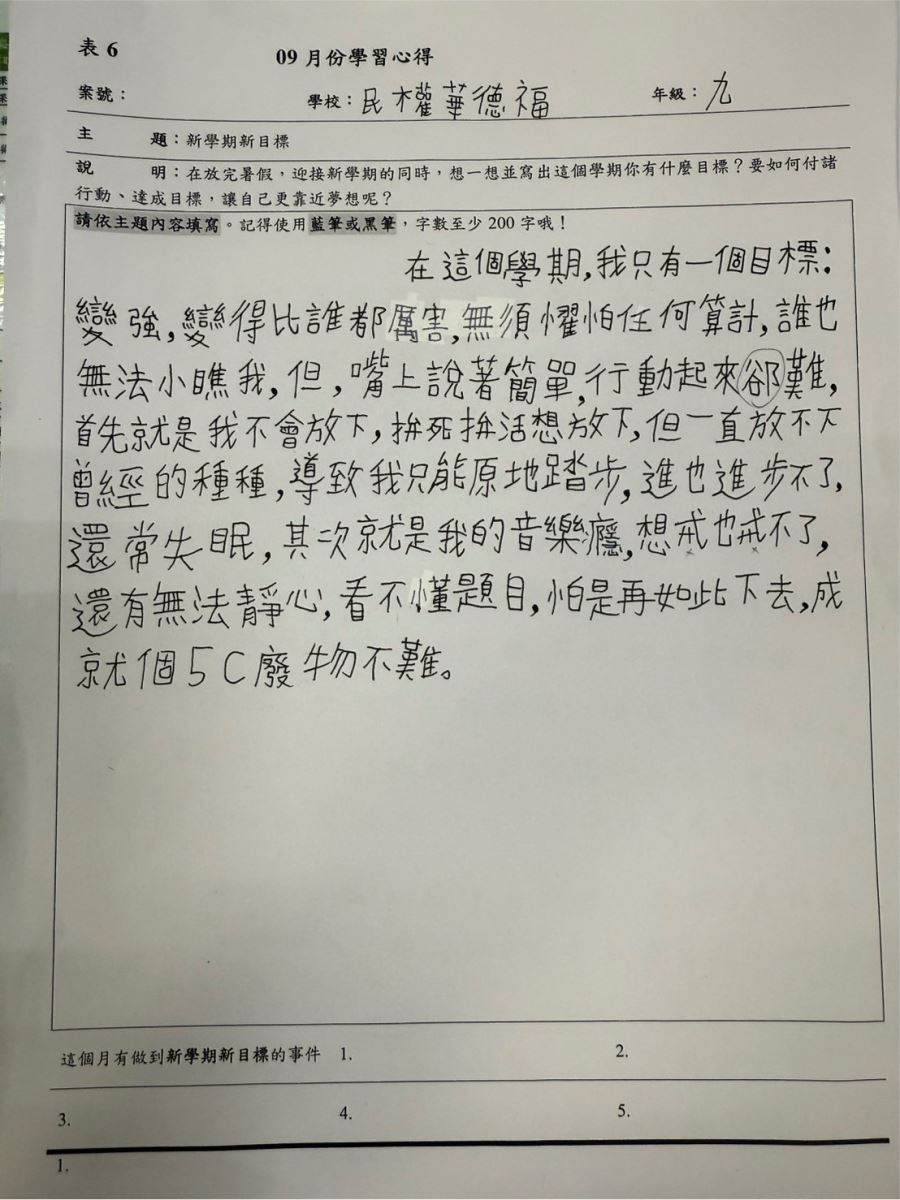 表 6
09 月份學習心得
案號： 學校：民權華德福 年級：九
主 題：新學期新目標
說 明：在放完暑假，迎接新學期的同時，想一想並寫出這個學期你有什麼目標？要如何付諸
行動、達成目標，讓自己更靠近夢想呢？
請依主題內容填寫。記得使用藍筆或黑筆，字數至少 200 字哦！
在這個學期,我只有一個目標：
變強,變得比誰都厲害,無須懼怕任何算計,誰也
無法小瞧我,但,嘴上說著簡單,行動起來卻難,
首先就是我不會放下,拚死拚活想放下,但一直放不下
曾經的種種,導致我只能原地踏步,進也進步不了,
還常失眠,其次就是我的音樂癮,想戒也戒不了,
還有無法靜心,看不懂題目,怕是再如此下去,成
就個5C廢物不難。
這個月有做到新學期新目標的事件 1. 2.
3. 4. 5.
1.